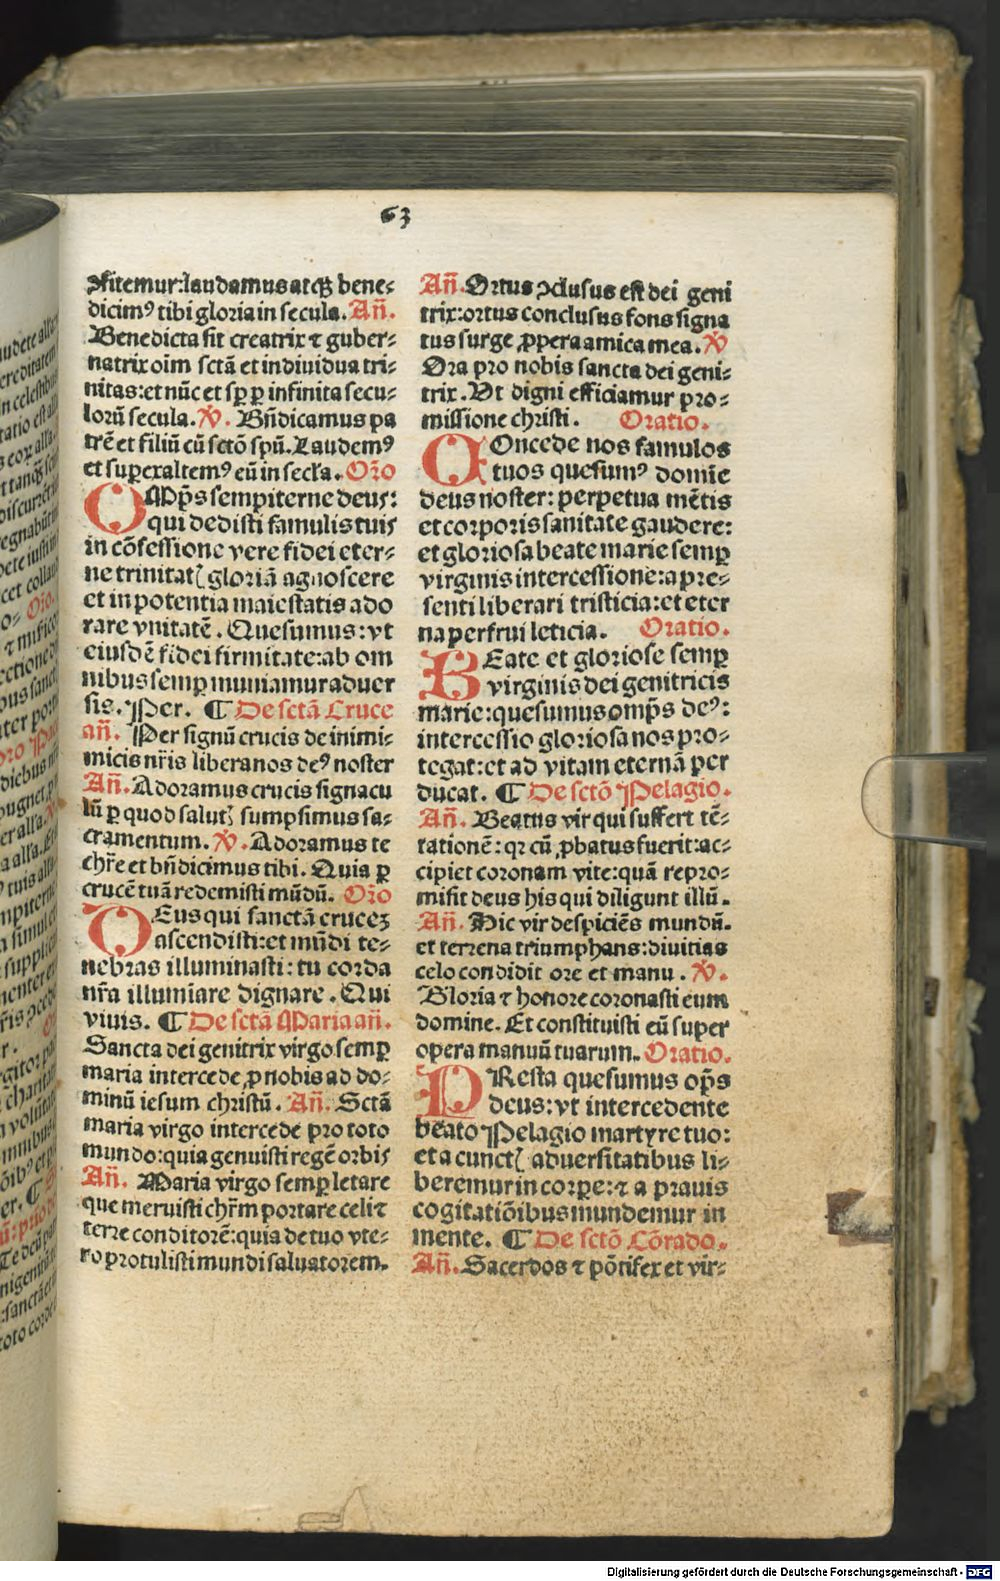 63
ꝯfitemur:laudamus atqꝫ bene⸗
dicimꝰ tibi gloria in secula. Añ.
Benedicta sit creatrix ⁊ guber⸗
natrix oim sctã et indiuidua tri⸗
nitas:et nũc et sꝑ ꝑ infinita secu⸗
lorũ secula. ℣. Bñdicamus pa
trẽ et filiũ cũ sctõ spũ. Laudemꝰ
et superxaltemꝰ eũ in secl'a. Orõ
OMp̃s sempiterne deus:
qui dedisti famulis tuis
in cõfessione vere fidei eter⸗
ne trinitatꝭ gloriã agnoscere
et in potentia maiestatis ado
rare vnitatẽ. Quesumus:vt
eiusdẽ fidei firmitate:ab om
nibus semꝑ muniamur aduer
sis. Per. ¶ De sctã Cruce
añ. Per signũ crucis de inimi⸗
micis nr̃is libera nos deꝰ noster
Añ. Adoramus crucis signacu
lũ ꝑ quod salutꝭ sumpsimus sa⸗
cramentum. ℣. Adoramus te
chr̃e et bñdicimus tibi. Quia ꝑ
crucẽ tuã redemisti mũdũ. Orõ
DEus qui sanctã crucez
ascendisti:et mũdi te⸗
nebras illuminasti: tu corda
nr̃a illumiare dignare. Qui
viuis. ¶ De sctã Maria añ.
Sancta dei genitrix virgo semꝑ
maria intercede ꝓ nobis ad do⸗
minũ iesum christũ. Añ. Sctã
maria virgo intercede pro toto
mundo:quia genuisti regẽ orbis
Añ. Maria virgo semꝑ letare
que meruisti chr̃m portare celi ⁊
terre conditorẽ:quia de tuo vte⸗
ro protulisti mundi saluatorem.
Añ. Ortus ꝯclusus est dei geni
trix:ortus conclusus fons signa
tus surge ꝓpera amica mea. ℣
Ora pro nobis sancta dei geni⸗
trix. Vt digni efficiamur pro⸗
missione christi. Oratio.
COncede nos famulos
tuos quesumꝰ domie
deus noster: perpetua mẽtis
et corporis sanitate gaudere:
et gloriosa beate marie semꝑ
virginis intercessione:a pre⸗
senti liberari tristicia:et eter
na perfrui leticia. Oratio.
BEate et gloriose semꝑ
virginis dei genitricis
marie:quesumus omp̃s deꝰ:
intercessio gloriosa nos pro⸗
tegat:et ad vitam eternã per
ducat. ¶ De sctõ Pelagio.
Añ. Beatus vir qui suffert tẽ⸗
tationẽ: qꝛ cũ ꝓbatus fuerit:ac⸗
cipiet coronam vite:quã repro⸗
misit deus his qui diligunt illũ.
Añ. Hic vir despiciẽs mundũ.
et terrena triumphans:diuitias
celo condidit ore et manu. ℣.
Gloria ⁊ honore coronasti eum
domine. Et constituisti eũ super
opera manuũ tuarum. Oratio.
PResta quesumus op̃s
deus:vt intercedente
beato Pelagio martyre tuo:
et a cunctꝭ aduersitatibus li⸗
beremur in corpe:⁊ a prauis
cogitatiõibus mundemur in
mente. ¶ De sctõ Cõrado.
Añ. Sacerdos ⁊ põtifex et vir⸗
Digitalisierung gefördert durch die Deutsche Forschungsgemeinschaft - DFG